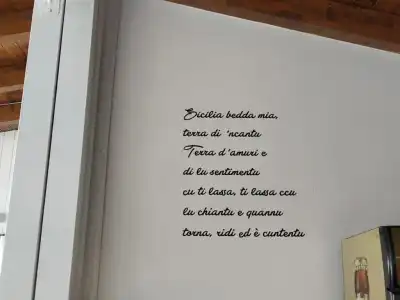 Sicilia bedda mia,
terra di 'ncantu
Terra d'amuri e
di lu sentimentu
cu ti lassa, ti lassa ccu
lu chiantu e quannu
torna, ridi ed è cuntentu